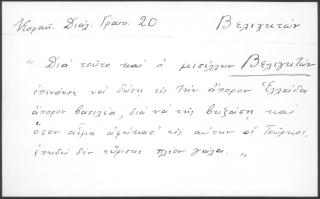 Κοραῆ, Διάλ. Γραικ. 20 Βελιγκτών
"Διὰ τοῦτο καὶ ὁ μισέλλην Βελιγκτὼν
ἐπενόησε νὰ δώσῃ εἰς τὴν ἄπορον Ἑλλάδα
ἄπορον βασιλέα, διὰ νὰ τῆς βυζάσῃ καὶ
ὅσον αἷμα ἀφῆκασ' εἰς αὐτὴν οἱ Τοῦρκοι,
ἐπειδὴ δὲν εὕρισκε πλέον γάλα. "